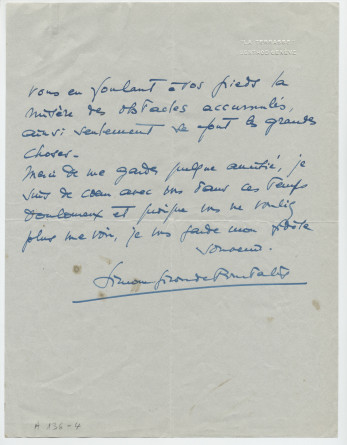 LA TERRASSE
vous en foulant à vos pieds la
misère des obstacles accumulés,
ainsi seulement se font les grandes
choses.
Merci de me garder quelque amitié, je
suis de cœur avec vous dans ces temps
douloureux et puisque vous ne voulez
plus me voir, je vous garde mon fidèle
souvenir.
A 136-4